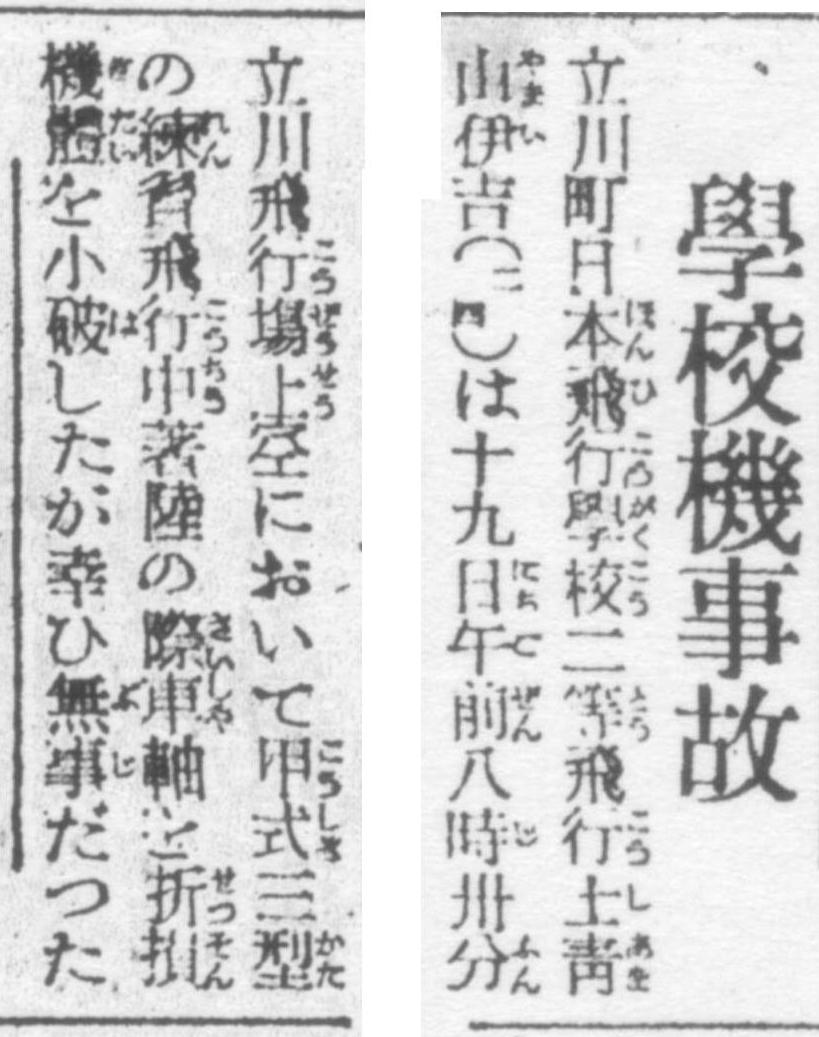 學校機事故
立川町日本飛行學校二等飛行士靑
山伊吉(二四)は十九日午前八時卅分
立川飛行場上空において甲式三型
の練習飛行中著陸の際車軸を折損
機體を小破したが幸ひ無事だつた